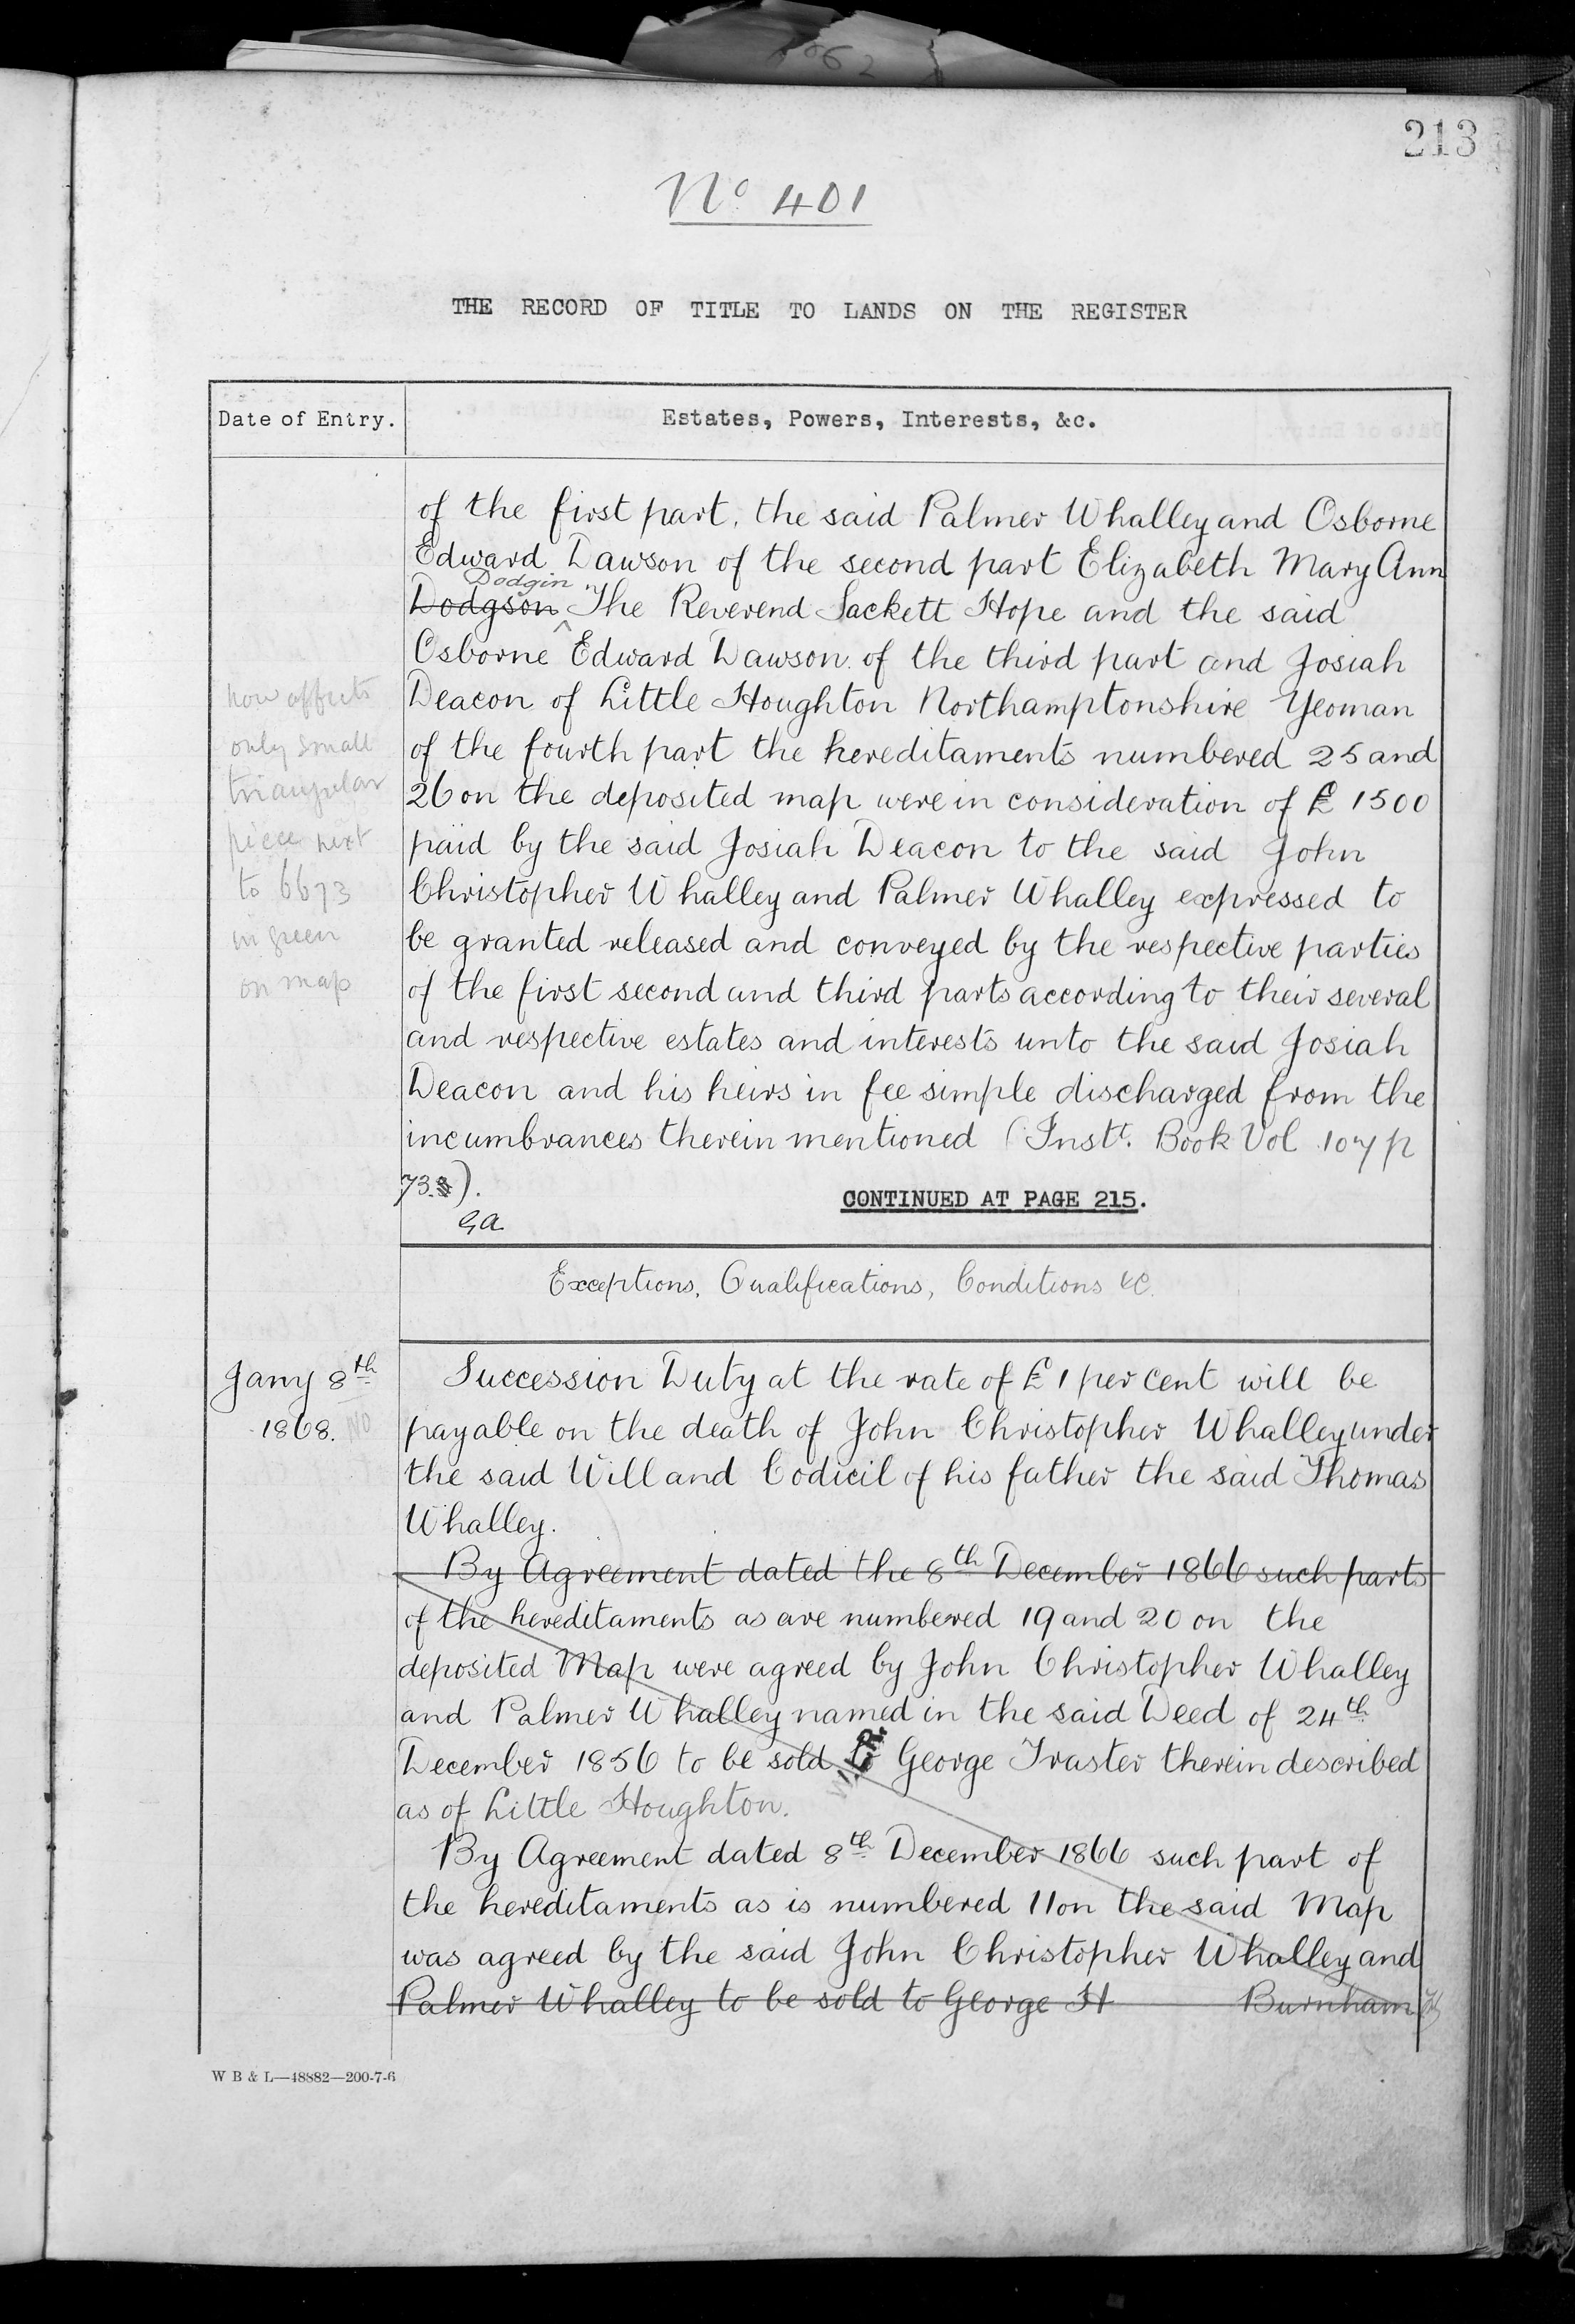 213
No 401
THE RECORD OF TITLE TO LANDS ON THE REGISTER
Date of Entry.
Estates, Powers, Interests, &c.
of the first part, the said Palmer Whalley and Osborne
Edward Dawson of the second part Elizabeth Mary Ann
Dodgin
Dodgson The Reverend Sackett Hope and the said
Osborne Edward Dawson of the third part and Josiah
Deacon of Little Houghton Northamptonshire Yeoman
of the fourth part the hereditaments numbered 25 and
26 on the deposited map were in consideration of £1500
paid by the said Josiah Deacon to the said John
Christopher Whalley and Palmer Whalley expressed to
be granted released and conveyed by the respective parties
of the first second and third parts according to their several
and respective estates and interests unto the said Josiah
Deacon and his heirs in fee simple discharged from the
incumbrances therein mentioned (Instt. Book Vol 107 p
73).
GA
CONTINUED AT PAGE 215.
now affects
only small
triangular
piece next
to 6673
in green
on map
Exceptions, Qualifications, Conditions &c.
Jany 8th
1868.
Succession Duty at the rate of £1 per cent will be
payable on the death of John Christopher Whalley under
the said Will and Codicil of his father the said Thomas
Whalley.
By Agreement dated the 8th December 1866 such parts
of the hereditaments as are numbered 19 and 20 on the
deposited Map were agreed by John Christopher Whalley
and Palmer Whalley named in the said Deed of 24th
December 1856 to be sold to George Traster therein described
as of Little Houghton.
By Agreement dated 8th December 1866 such part of
the hereditaments as is numbered 11 on the said Map
was agreed by the said John Christopher Whalley and
Palmer Whalley to be sold to George H Burnham
W B & L—48882—200-7-6